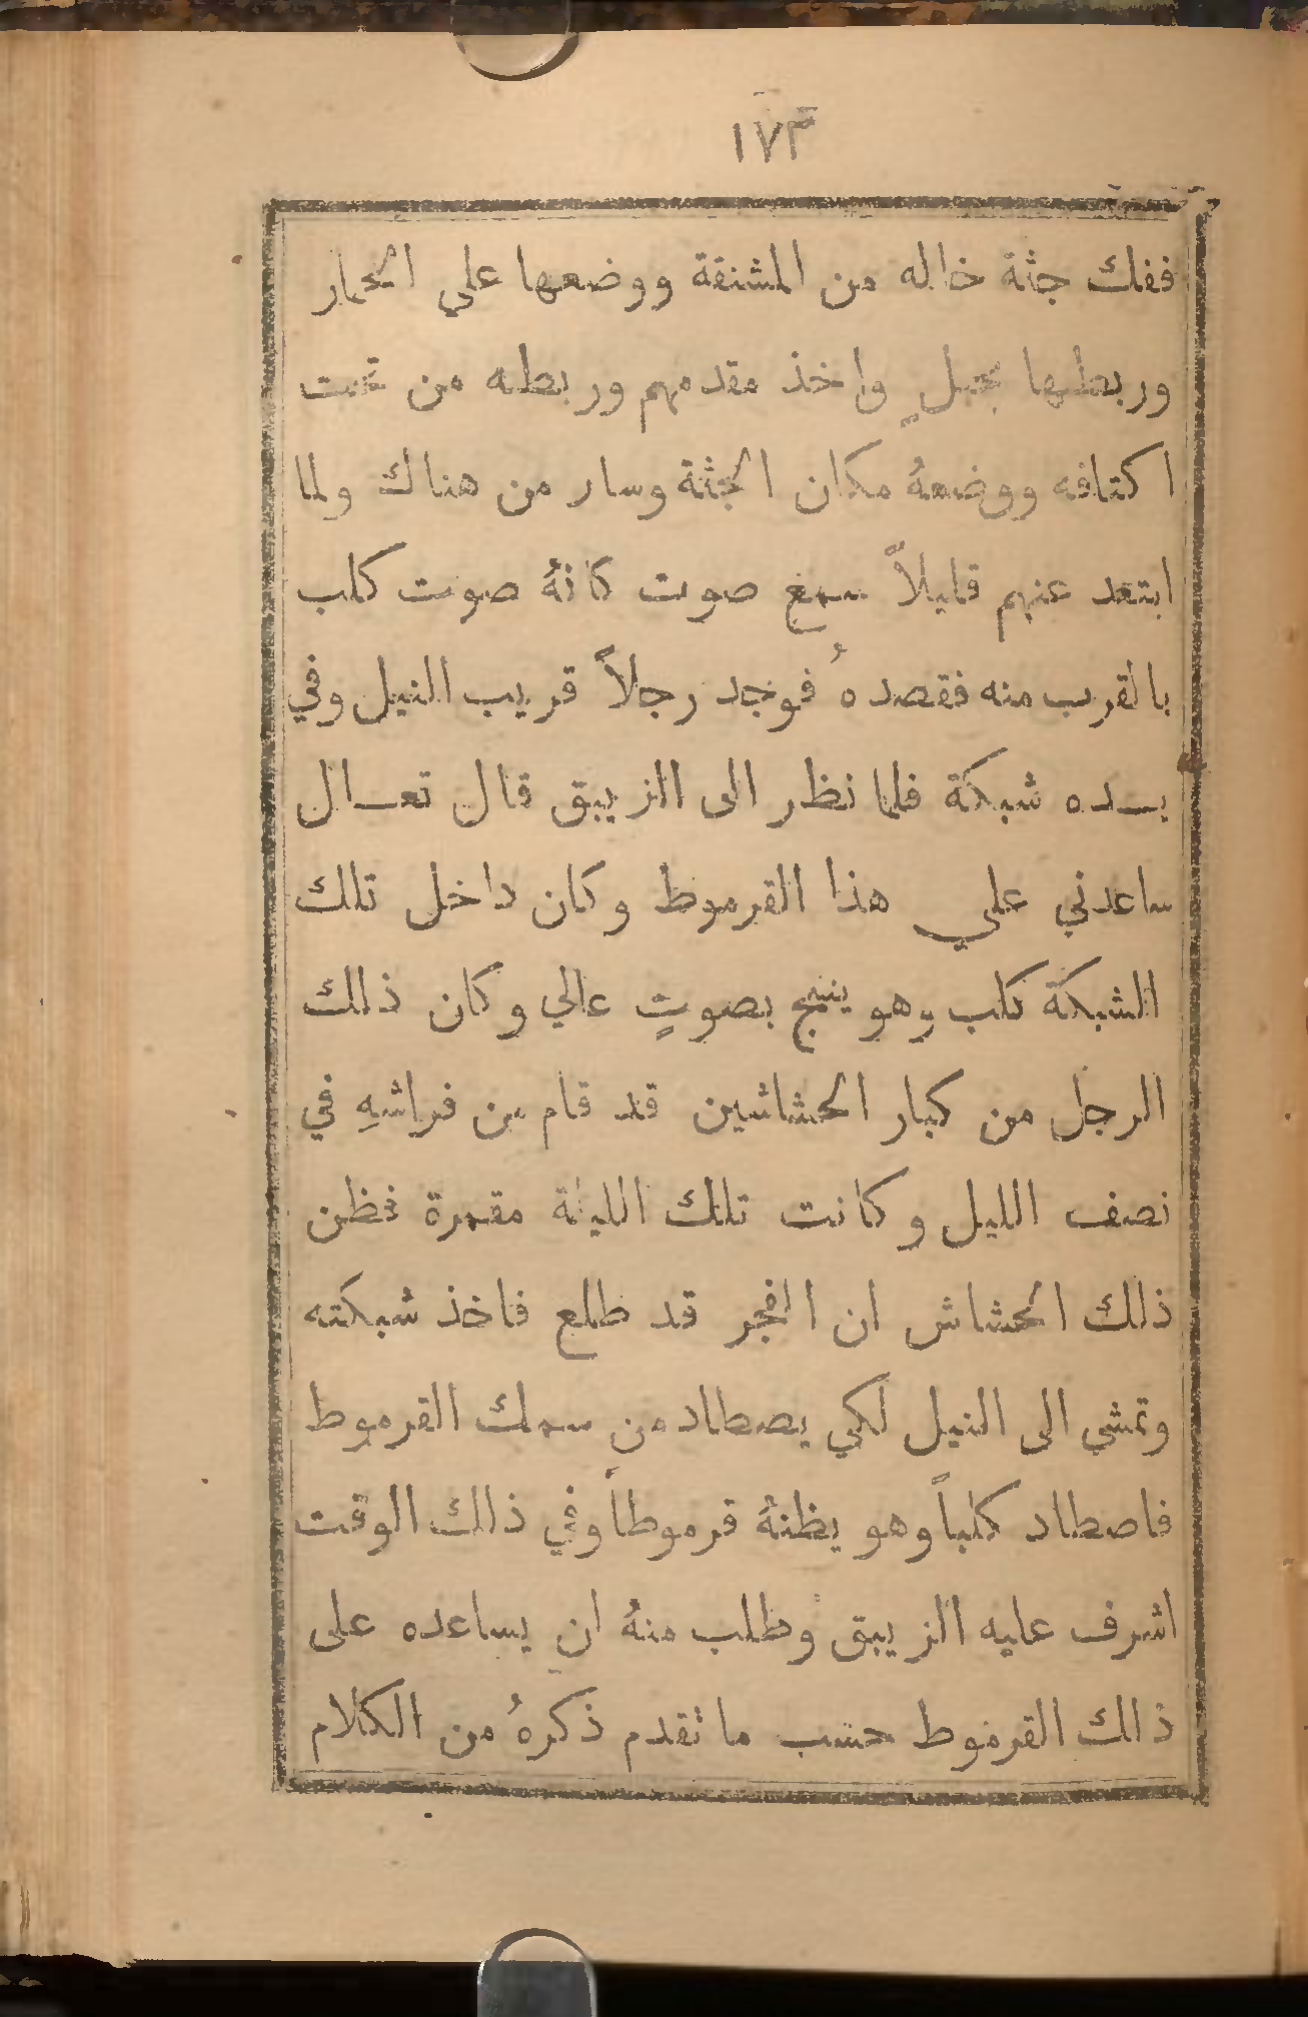 ١٧٣
ففك جثة خاله من المشنقة ووضعها على الحمار
وربطها بحبلٍ واخذ مقدمهم وربطه من تحت
اكتافه ووضعهُ مكان الجثة وسار من هناك ولما
ابتعد عنهم قليلاً سمع صوت كانهُ صوت كلب
بالقرب منه فقصدهُ فوجد رجلاً قريب النيل وفي
يـده شبكة فلما نظر الى الزيبق قال تعـال
ساعدني على هذا القرموط وكان داخل تلك
الشبكة كلب وهو ينبح بصوتٍ عالي وكان ذلك
الرجل من كبار الحشاشين قد قام من فراشهِ في
نصف الليل وكانت تلك الليلة مقمرة فظن
ذلك الحشاش ان الفجر قد طلع فاخذ شبكته
وتمشى الى النيل لكي يصطاد من سمك القرموط
فاصطاد كلباً وهو يظنهُ قرموطاً وفي ذلك الوقت
اشرف عليه الزيبق وطلب منهُ ان يساعده على
ذلك القرموط حسب ما تقدم ذكرهُ من الكلام